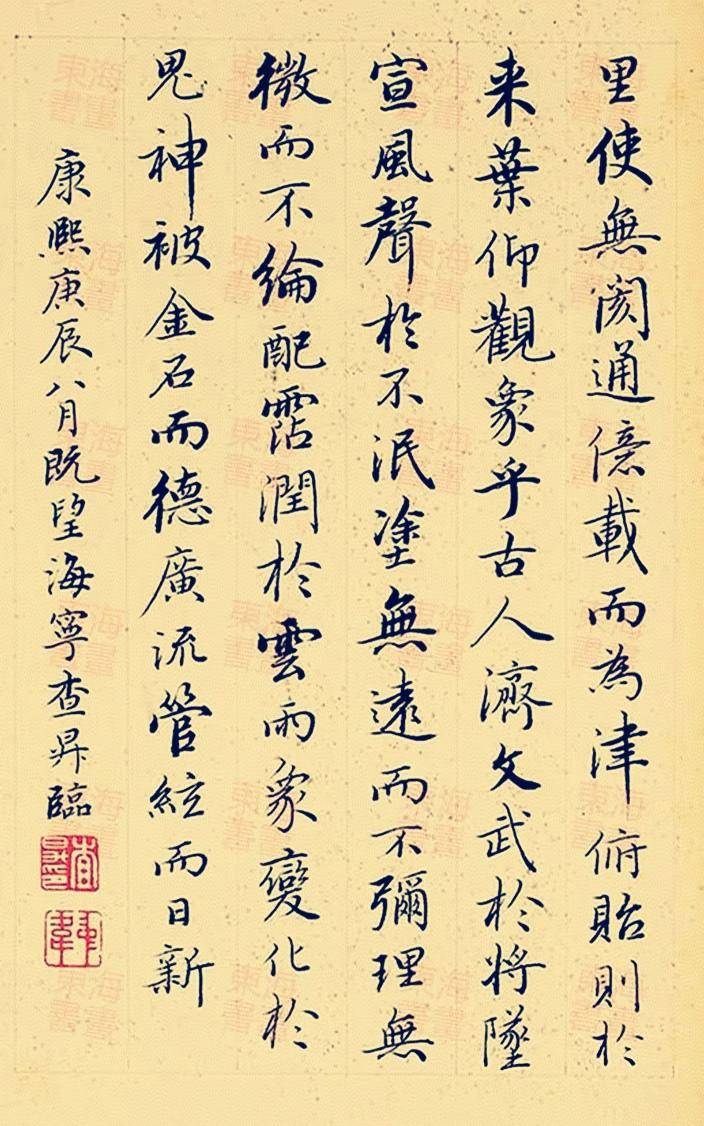 里使無阂通億載而為津俯貽則於
来葉仰觀象乎古人濟文武於將墜
宣風聲於不泯塗無遠而不彌理無
微而不綸配霑潤於雲雨象變化於
鬼神被金石而德廣流管絃而日新
康熙庚辰八月既望海寧查昇臨
查昇
海東書畫